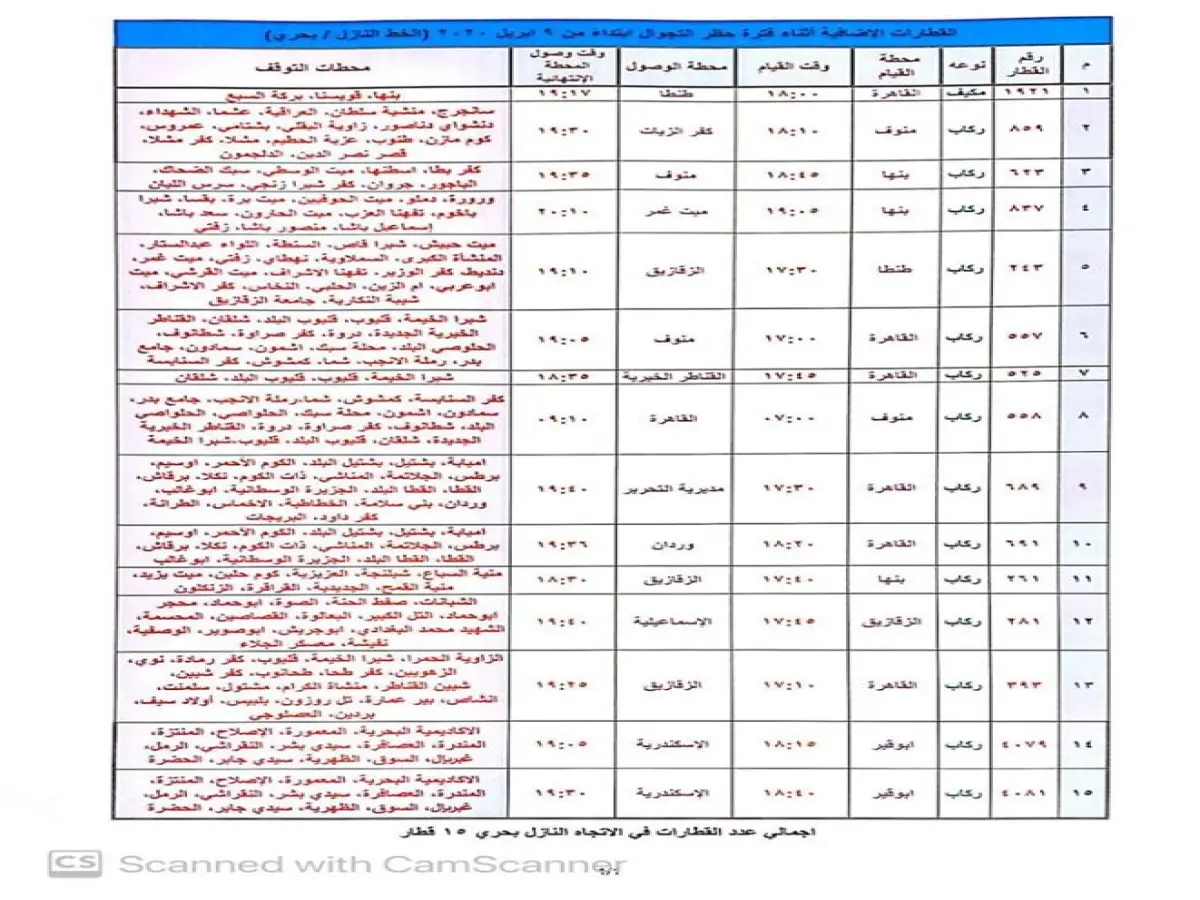 القطارات الإضافية أثناء فترة حظر التجوال ابتداء من ٩ ابريل ٢٠٢٠ (الخط النازل / بحري)
م رقم القطار نوعه محطة القيام وقت القيام محطة الوصول وقت وصول المحطة الإنتهائية محطات التوقف
١ ١٩٢١ مكيف القاهرة ١٨:٠٠ طنطا ١٩:١٧ بنها، قويسنا، بركة السبع
٢ ٨٥٩ ركاب منوف ١٨:١٠ كفر الزيات ١٩:٣٠ سانجرج، منشية سلطان، العراقية، عشما، الشهداء،
دنشواي دناصور، زاوية البقلي، بشتامي، عمروس،
كوم مازن، طنوب، عزبة الحطيم، مشلا، كفر مشلا،
قصر نصر الدين، الدلجمون
٣ ٦٢٣ ركاب بنها ١٨:٤٥ منوف ١٩:٣٥ كفر بطا، اسطنها، ميت الوسطي، سبك الضحاك،
الباجور، جروان، كفر شبرا زنجي، سرس الليان
٤ ٨٣٧ ركاب بنها ١٩:٠٥ ميت غمر ٢٠:١٠ ورورة، دملو، ميت الحوفيين، ميت برة، بقسا، شبرا
باخوم، تفهنا العزب، ميت الحارون، سعد باشا،
إسماعيل باشا، منصور باشا، زفتي
٥ ٢٤٣ ركاب طنطا ١٧:٣٠ الزقازيق ١٩:١٠ ميت حبيش، شبرا قاص، السنطة، اللواء عبدالستار،
المنشأة الكبرى، السملاوية، نهطاي، زفتي، ميت غمر،
دنديط، كفر الوزير، تفهنا الاشراف، ميت القرشي، ميت
ابوعربي، ام الزين، الحلبي، النخاس، كفر الاشراف،
شيبة النكارية، جامعة الزقازيق
٦ ٥٥٧ ركاب القاهرة ١٧:٠٠ منوف ١٩:٠٥ شبرا الخيمة، قليوب، قليوب البلد، شلقان، القناطر
الخيرية الجديدة، دروة، كفر صراوة، شطانوف،
الحلوصي البلد، محلة سبك، اشمون، سمادون، جامع
بدر، رملة الانجب، شما، كمشوش، كفر السنابسة
٧ ٥٢٥ ركاب القاهرة ١٧:٤٥ القناطر الخيرية ١٨:٣٥ شبرا الخيمة، قليوب، قليوب البلد، شلقان
٨ ٥٥٨ ركاب منوف ٠٧:٠٠ القاهرة ٠٩:١٠ كفر السنابسة، كمشوش، شما،رملة الانجب، جامع بدر،
سمادون، اشمون، محلة سبك، الحلواصي، الحلواصي
البلد، شطانوف، كفر صراوة، دروة، القناطر الخيرية
الجديدة، شلقان، قليوب البلد، قليوب،شبرا الخيمة
٩ ٦٨٩ ركاب القاهرة ١٧:٣٠ مديرية التحرير ١٩:٤٠ امبابة، بشتيل، بشتيل البلد، الكوم الأحمر، اوسيم،
برطس، الجلاتمة، المناشي، ذات الكوم، نكلا، برقاش،
القطا، القطا البلد، الجزيرة الوسطانية، ابوغالب،
وردان، بني سلامة، الخطاطبة، الاخماس، الطرانة،
كفر داود، البريجات
١٠ ٦٩١ ركاب القاهرة ١٨:٢٠ وردان ١٩:٣٦ امبابة، بشتيل، بشتيل البلد، الكوم الأحمر، اوسيم،
برطس، الجلاتمة، المناشي، ذات الكوم، نكلا، برقاش،
القطا، القطا البلد، الجزيرة الوسطانية، ابوغالب
١١ ٢٦١ ركاب بنها ١٧:٤٠ الزقازيق ١٨:٣٠ منية السباع، شبلنجة، العزيزية، كوم حلين، ميت يزيد،
منية القمح، الجديدية، القراقرة، الزنكلون
١٢ ٢٨١ ركاب الزقازيق ١٧:٤٥ الإسماعيلية ١٩:٤٠ الشبانات، صفط الحنة، الصوة، ابوحماد، محجر
ابوحماد، التل الكبير، البعالوة، القصاصين، المحسمة،
الشهيد محمد البغدادي، ابوجريش، ابوصوير، الوصفية،
نفيشة، معسكر الجلاء
١٣ ٣٩٣ ركاب القاهرة ١٧:١٠ الزقازيق ١٩:٢٥ الزاوية الحمرا، شبرا الخيمة، قليوب، كفر رمادة، نوي،
الزهويين، كفر طحا، طحانوب، كفر شبين،
شبين القناطر، منشاة الكرام، مشتول، سلمنت،
الشاص، بير عمارة، تل روزون، بلبيس، اولاد سيف،
بردين، العصلوجي
١٤ ٤٠٧٩ ركاب ابوقير ١٨:١٥ الإسكندرية ١٩:٠٥ الاكاديمية البحرية، المعمورة، الإصلاح، المنتزة،
المندرة، العصافرة، سيدي بشر، النقراشي، الرمل،
غبريال، السوق، الظهرية، سيدي جابر، الحضرة
١٥ ٤٠٨١ ركاب ابوقير ١٨:٤٠ الإسكندرية ١٩:٣٠ الاكاديمية البحرية، المعمورة، الإصلاح، المنتزة،
المندرة، العصافرة، سيدي بشر، النقراشي، الرمل،
غبريال، السوق، الظهرية، سيدي جابر، الحضرة
اجمالي عدد القطارات في الاتجاه النازل بحري ١٥ قطار
CS Scanned with CamScanner